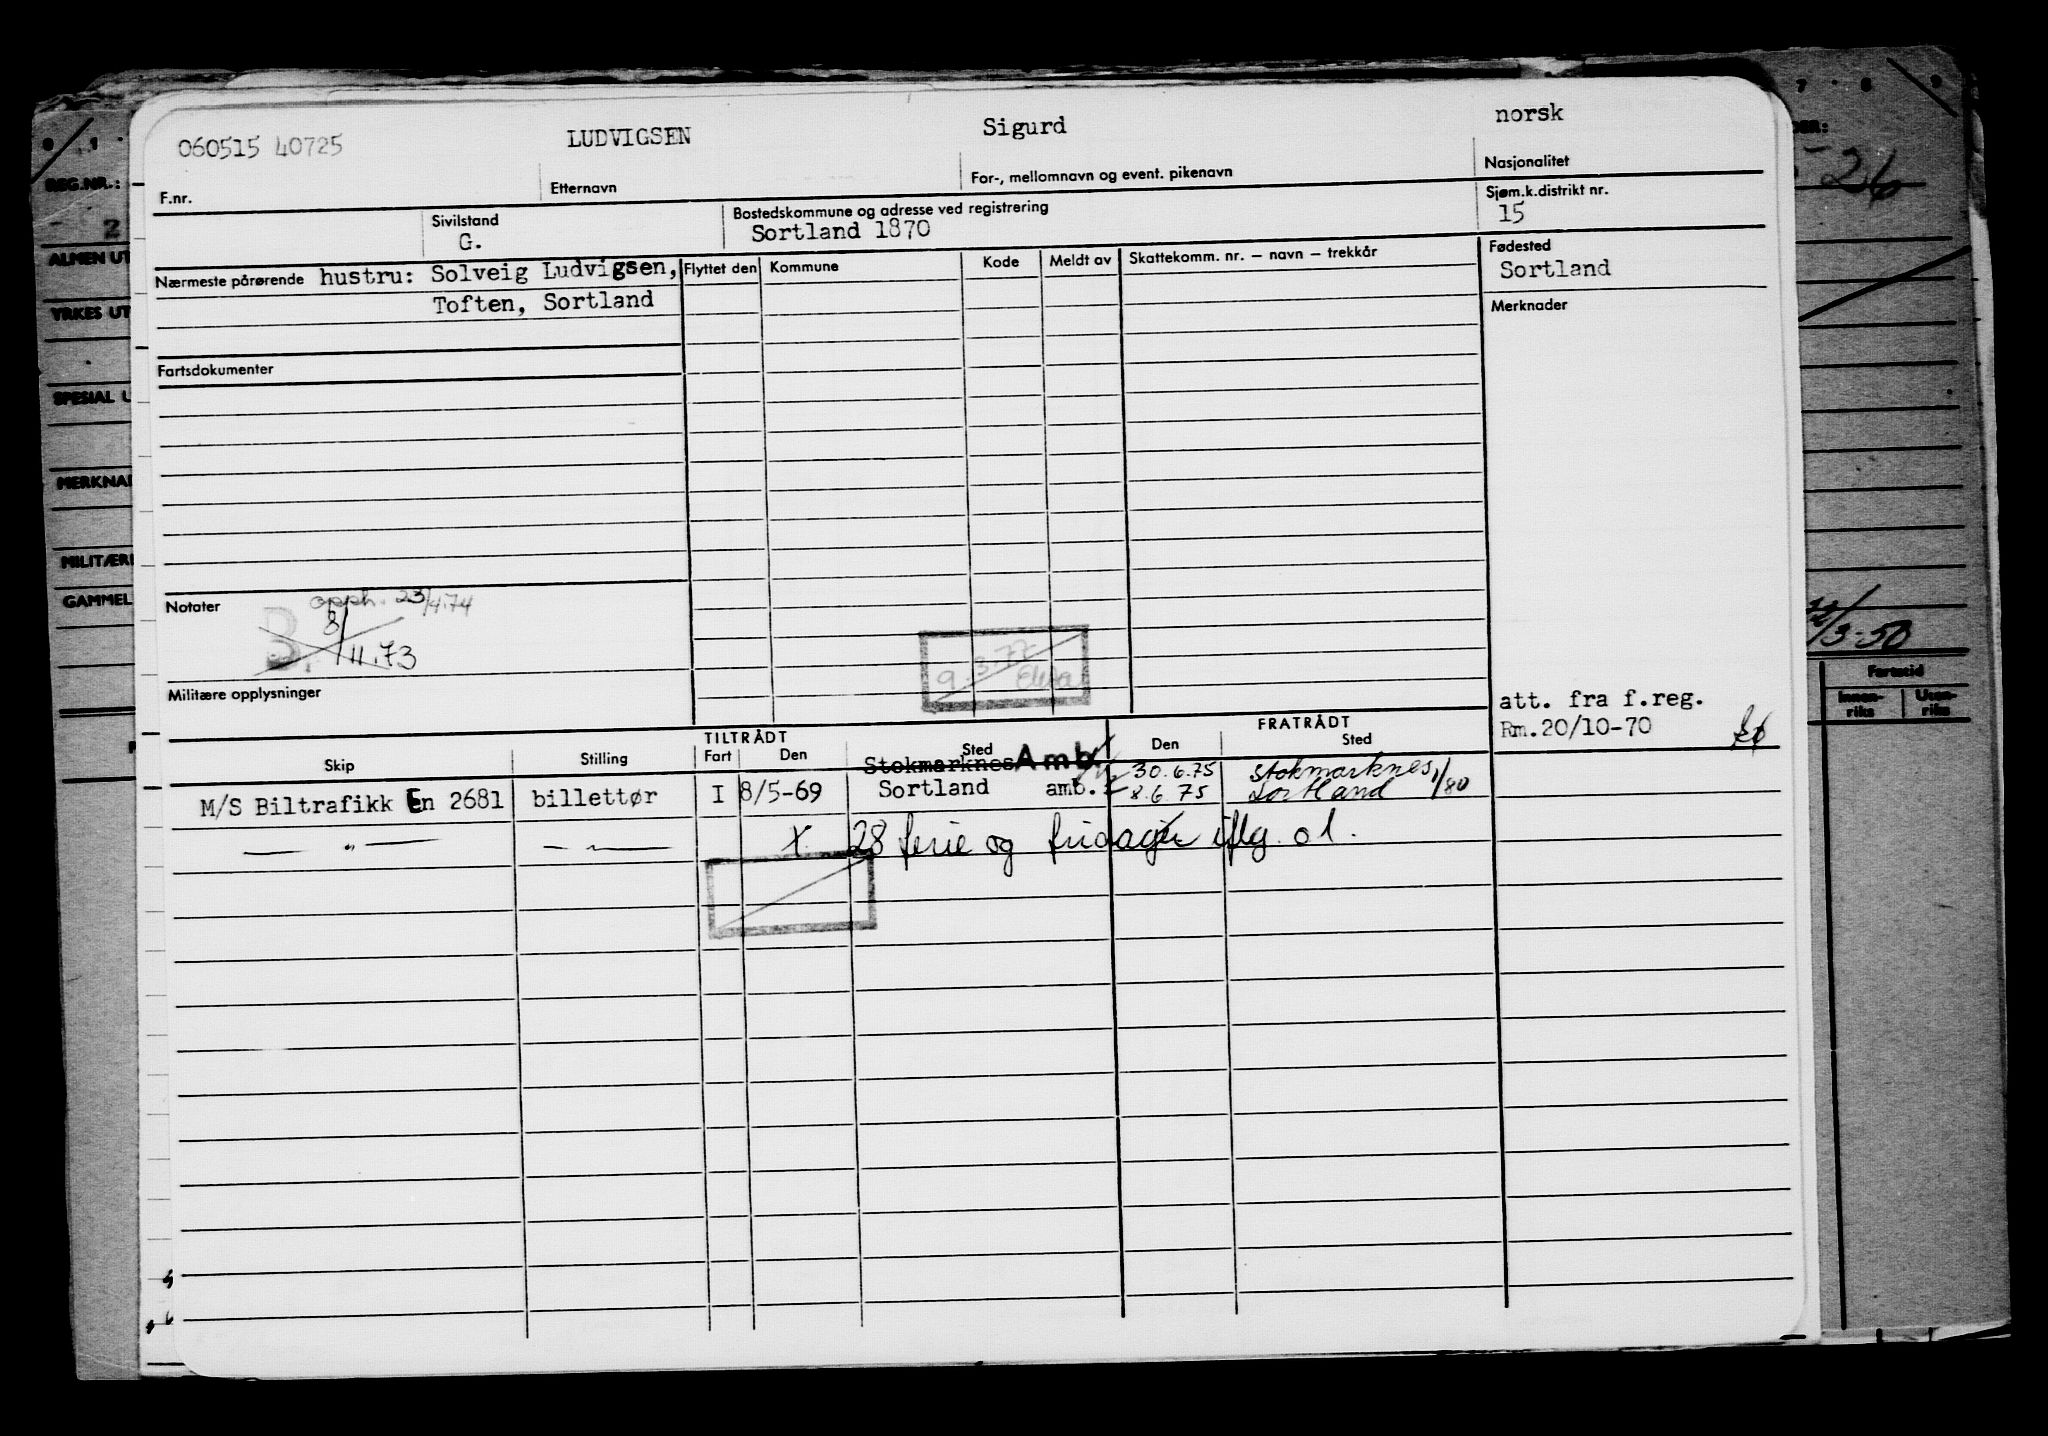 060515 40725 LUDVIGSEN Sigurd norsk
F.nr. Etternavn For-, mellomnavn og event. pikenavn Nasjonalitet
Sivilstand Bostedskommune og adresse ved registrering Sjøm.k.distrikt nr.
G. Sortland 1870 15
Nærmeste pårørende hustru: Solveig Ludvigsen, Flyttet den Kommune Kode Meldt av Skattekomm. nr. – navn – trekkår Fødested
Toften, Sortland Sortland
Merknader
Fartsdokumenter
Notater opph. 23/4.74
B. 8/11.73
9.3.77
Militære opplysninger
att. fra f.reg.
Rm.20/10-70
TILTRÅDT FRATRÅDT
Skip Stilling Fart Den Sted Den Sted
Stokmarknes Amb. 30.6.75 Stokmarknes 1/80
M/S Biltrafikk En 2681 billettør I 8/5-69 Sortland amb. 8.6.75 Sortland
— " — — " — x 28 ferie og fridager iflg. o l.
0 1
REG.NR.:
2
ALMEN UT
YRKES UT
SPESIAL U
MERKNAD
MILITÆRE
GAMMEL
7 8 9
DER:
26
/3-50
Fartstid
Innen-riks Uten-riks